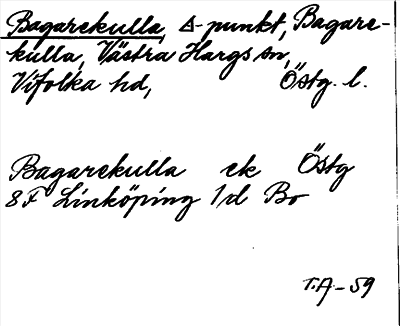 Bagarekulla, Δ-punkt, Bagare-
kulla, Västra Hargs sn,
Vifolka hd, Östg. l.
Bagarekulla ek Östg
8F Linköping 1d Bo
T.A-59